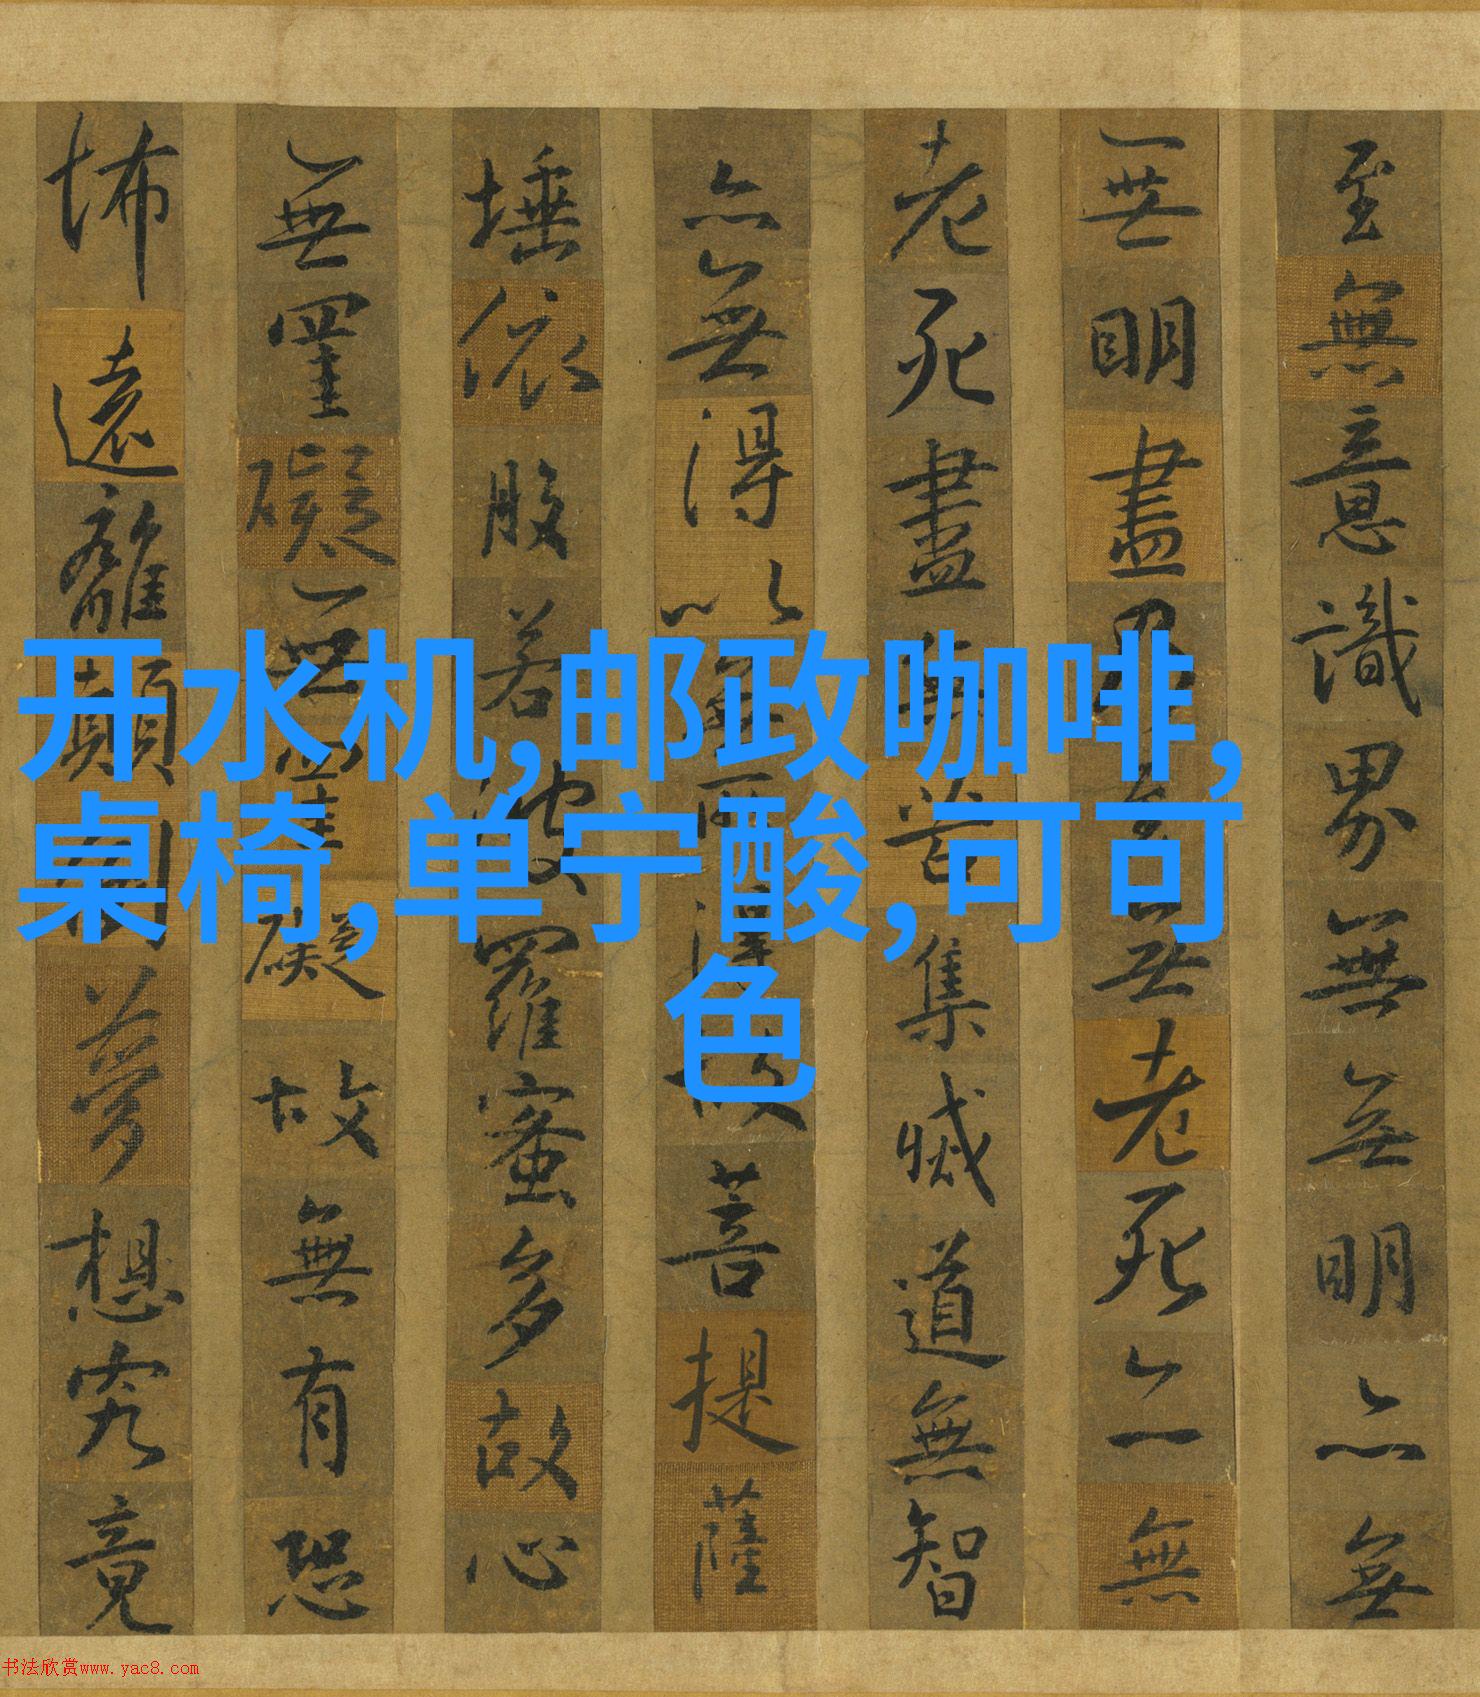 开水机,邮政咖啡,
桌椅,单宁酸,可可
色
至無意識界無無明亦無
無明盡乃至無老死亦無
老死盡無苦集滅道無智
亦無得以無所得故菩提薩
埵依般若波羅蜜多故心
無罣礙無罣礙故無有恐
怖遠離顛倒夢想究竟
书法欣赏www.yac8.com